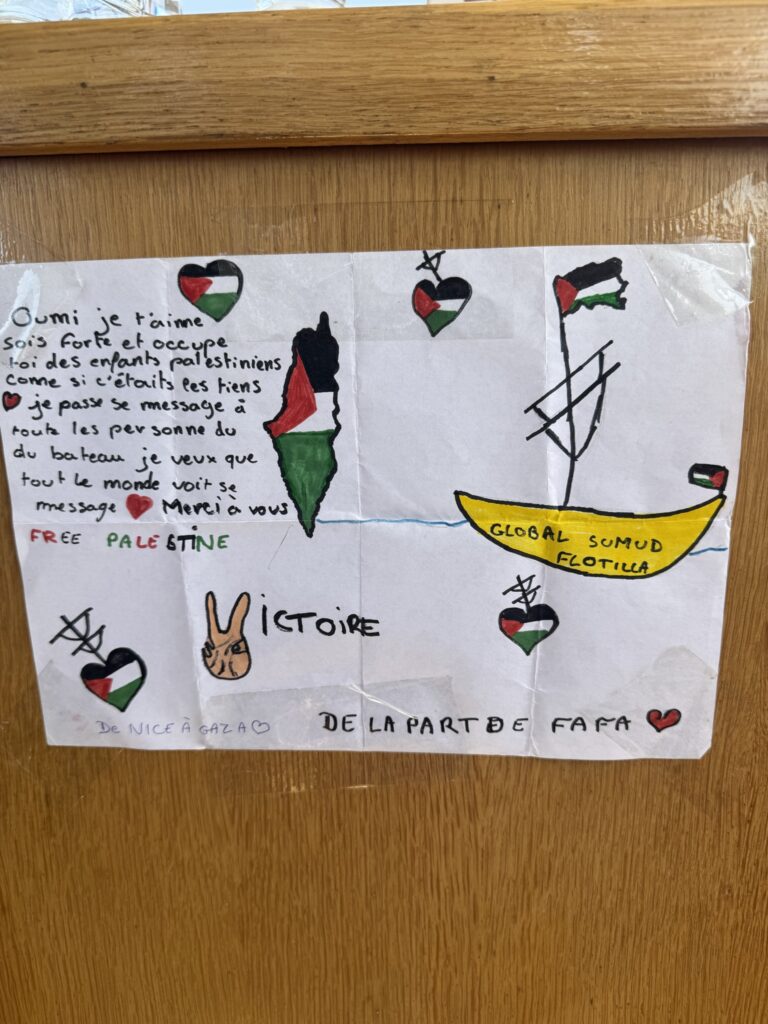 Oumi je t'aime
sois forte et occupe
toi des enfants palestiniens
comme si c'étaits les tiens
je passe se message à
toute les personne du
du bateau je veux que
tout le monde voit se
message Merci à vous
FREE PALESTINE
GLOBAL SUMUD
FLOTILLA
ICTOIRE
De NICE À GAZA
DE LA PART DE FAFA